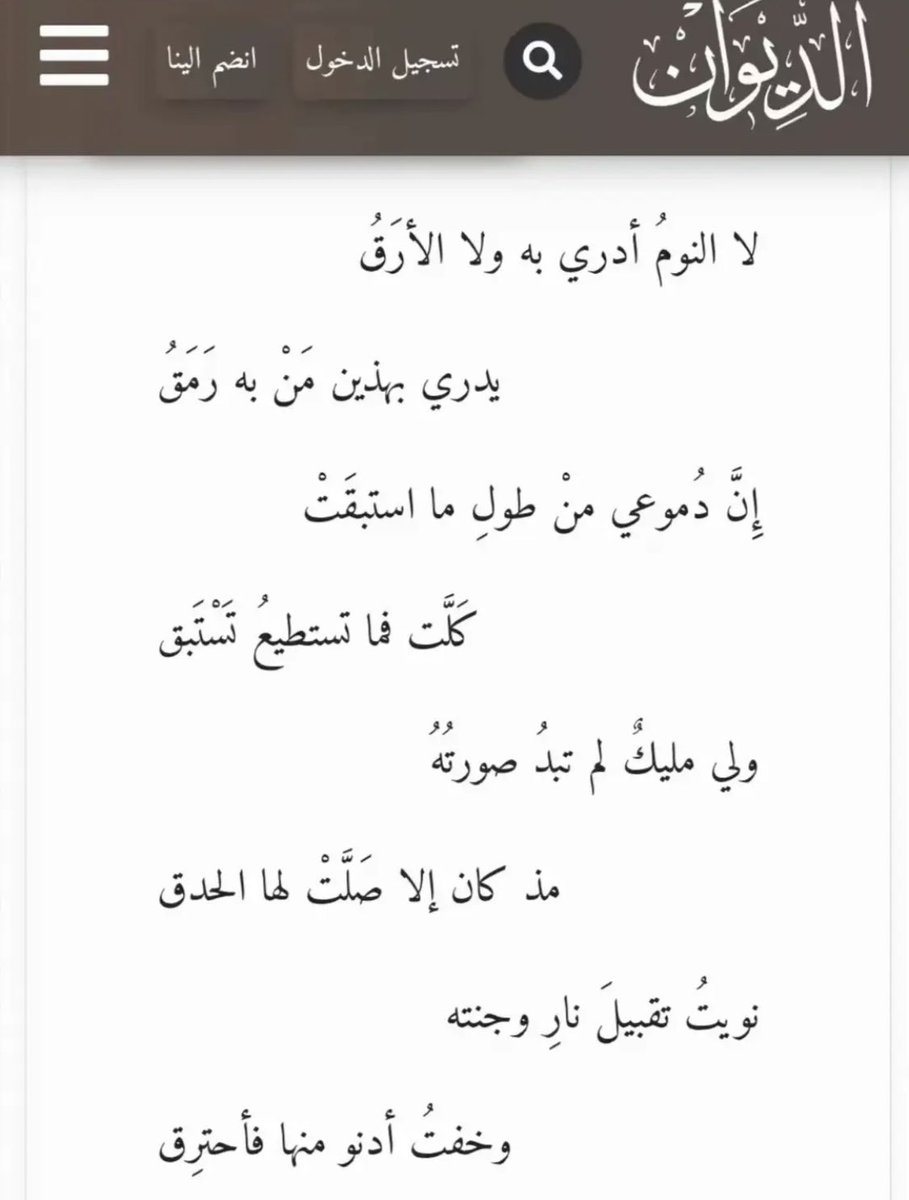 الدِّيوَان
تسجيل الدخول
انضم الينا
لا النومُ أدري به ولا الأرَقُ
يدري بهذين مَنْ به رَمَقُ
إِنَّ دُموعي منْ طولِ ما استبقَتْ
كَلَّت فما تستطيعُ تَسْتَبق
ولي مليكٌ لم تبدُ صورتُهُ
مذ كان إلا صَلَّتْ لها الحدق
نويتُ تقبيلَ نارِ وجنته
وخفتُ أدنو منها فأحترِق